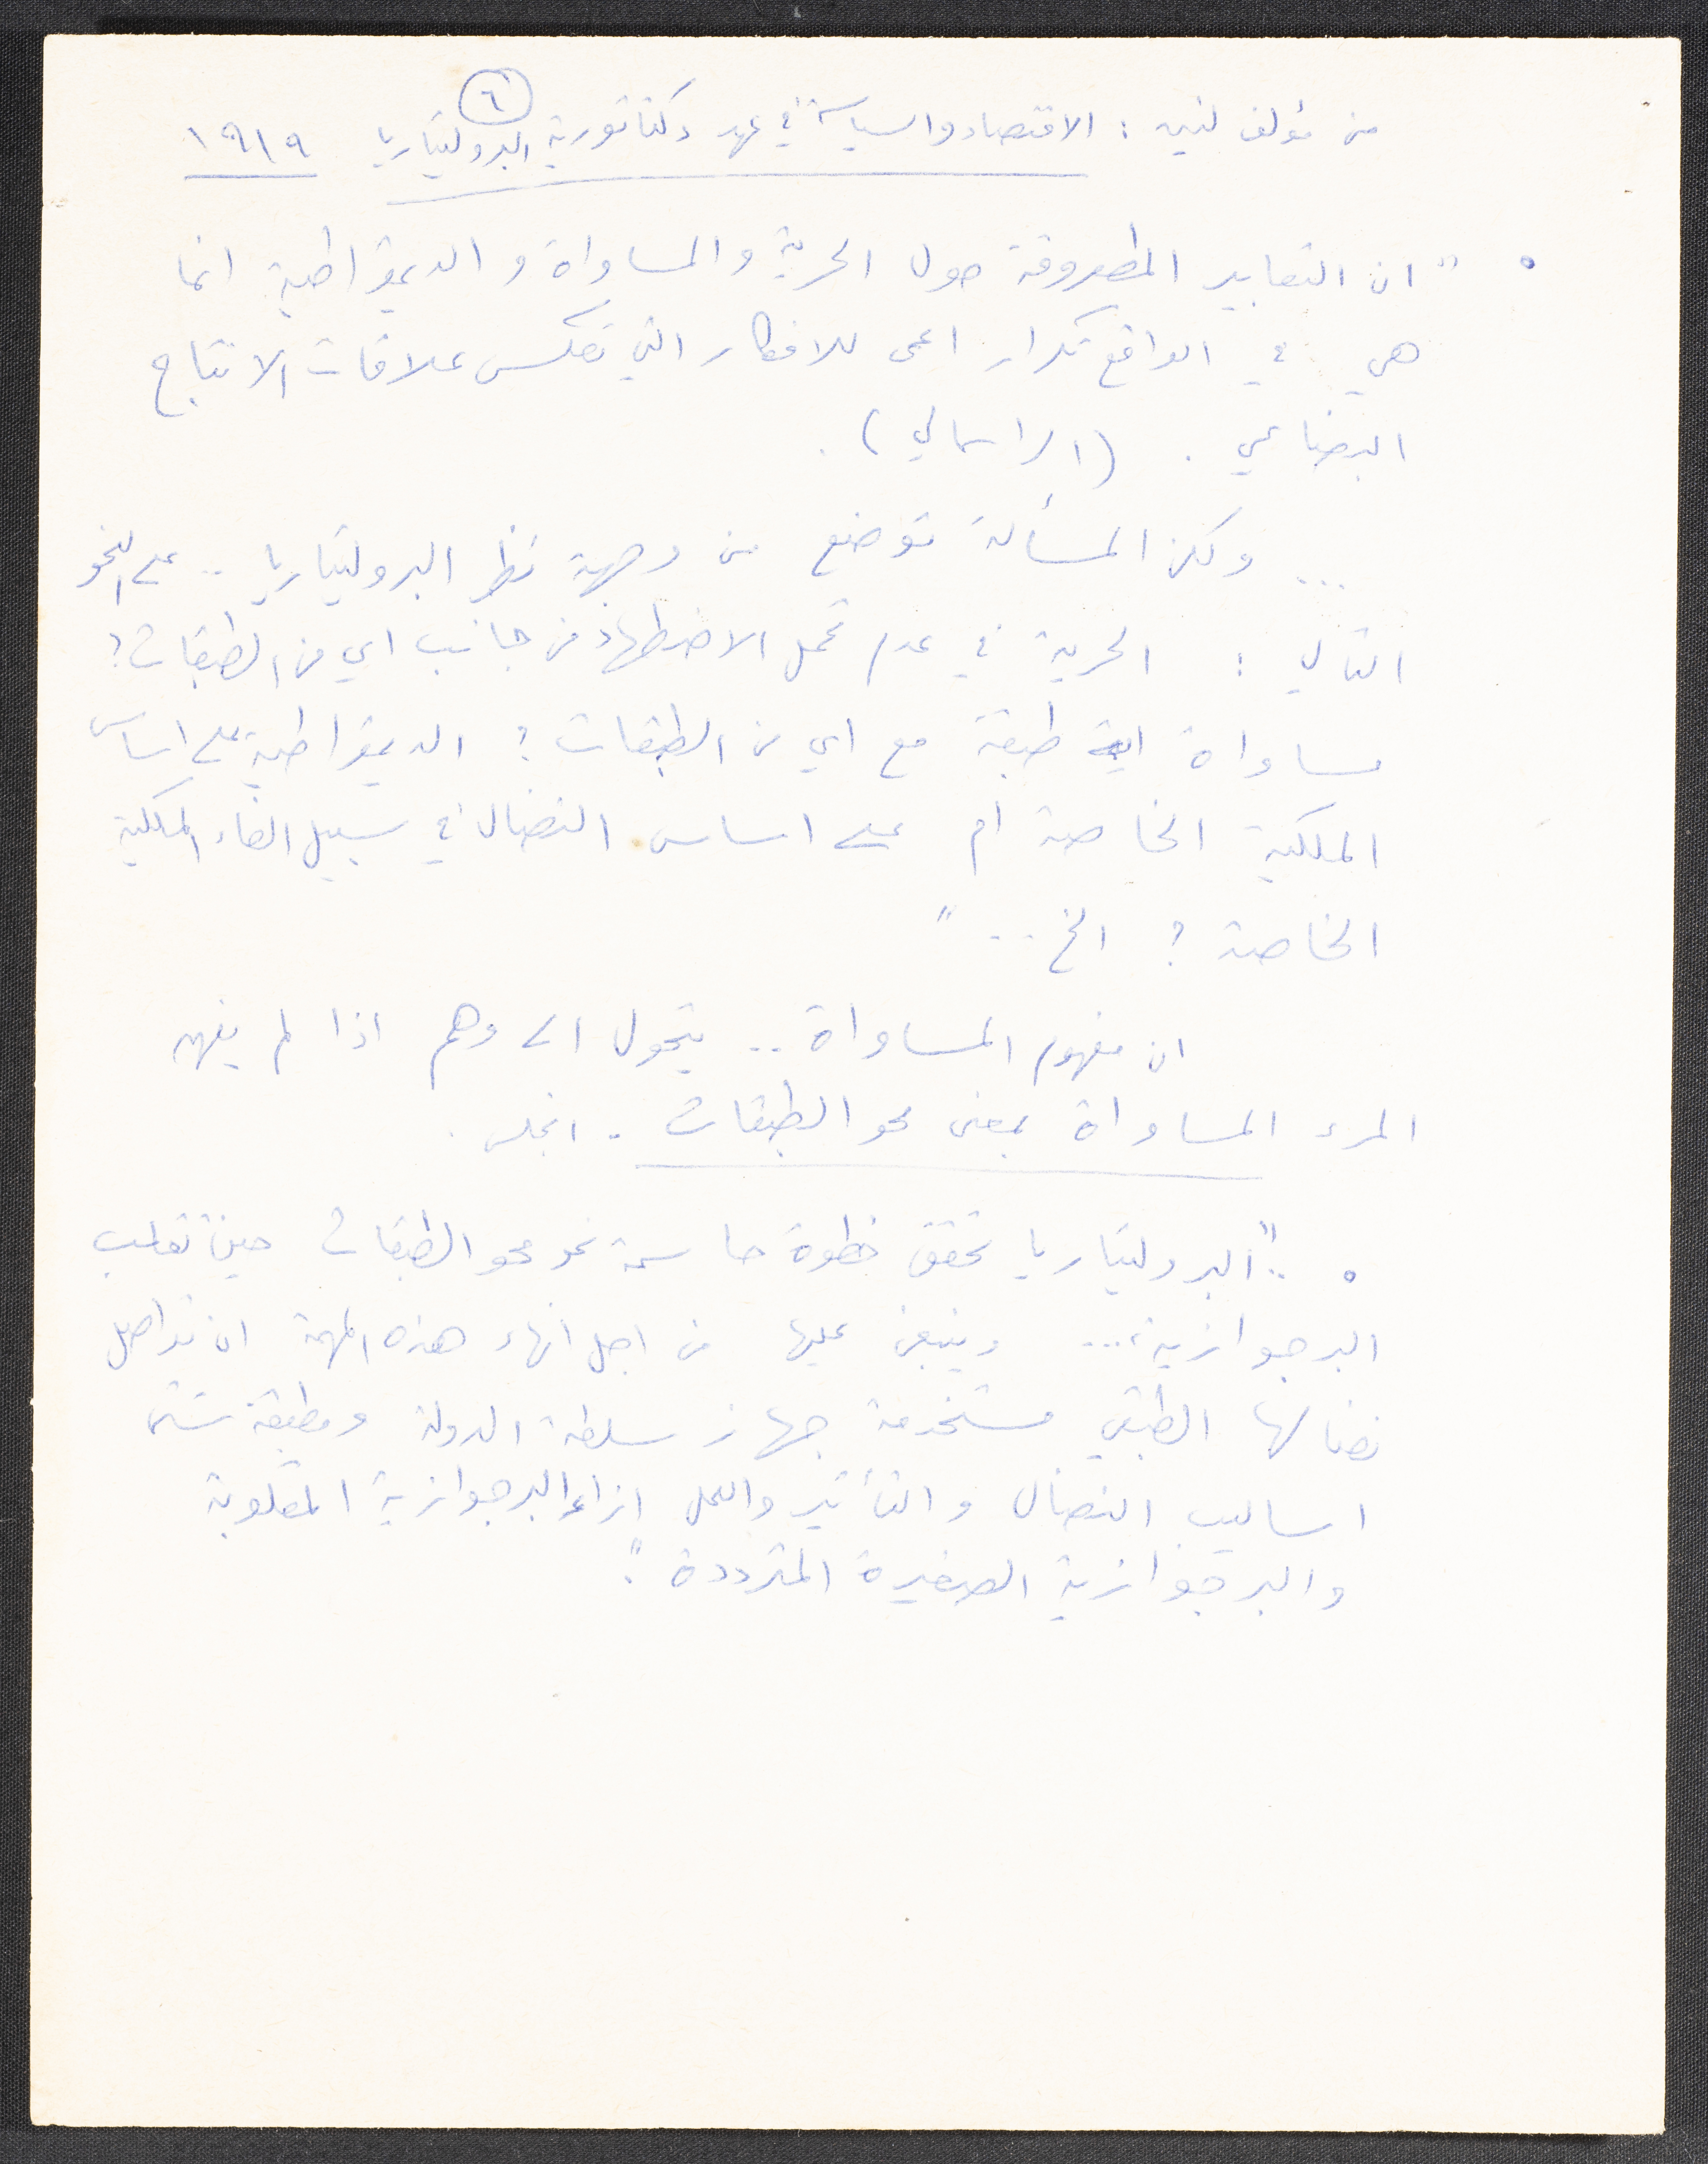 ٦
من مؤلف لنين : الاقتصاد والسياسة في عهد دكتاتورية البروليتاريا ١٩١٩
° " ان التعابير المطروقة حول الحرية والمساواة و الديمقراطية انما
هي في الواقع تكرار اعمى للافكار التي تعكس علاقات الانتاج
البضاعي . (الراسمالي) .
... ولكن المسألة توضع من وجهة نظر البروليتاريا .. على النحو
التالي : الحرية في عدم تحمل الاضطهاد من جانب اي من الطبقات ؟
مساواة اية طبقة مع اي من الطبقات ؟ الديمقراطية على اساس
الملكية الخاصة أم على اساس النضال في سبيل الغاء الملكية
الخاصة ؟ الخ .. "
ان مفهوم المساواة .. يتحول الى وهم اذا لم يفهم
المرء المساواة بمعنى محو الطبقات . انجلس .
° " .. البروليتاريا تحقق خطوة حاسمة نحو محو الطبقات حين تقلب
البرجوازية ... وينبغي عليها من اجل انهاء هذه المهمة ان تواصل
نضالها الطبقي مستخدمة جهاز سلطة الدولة ومطبقة شتى
اساليب النضال و التأثير والعمل ازاء البرجوازية المقلوبة
والبرجوازية الصغيرة المترددة " .